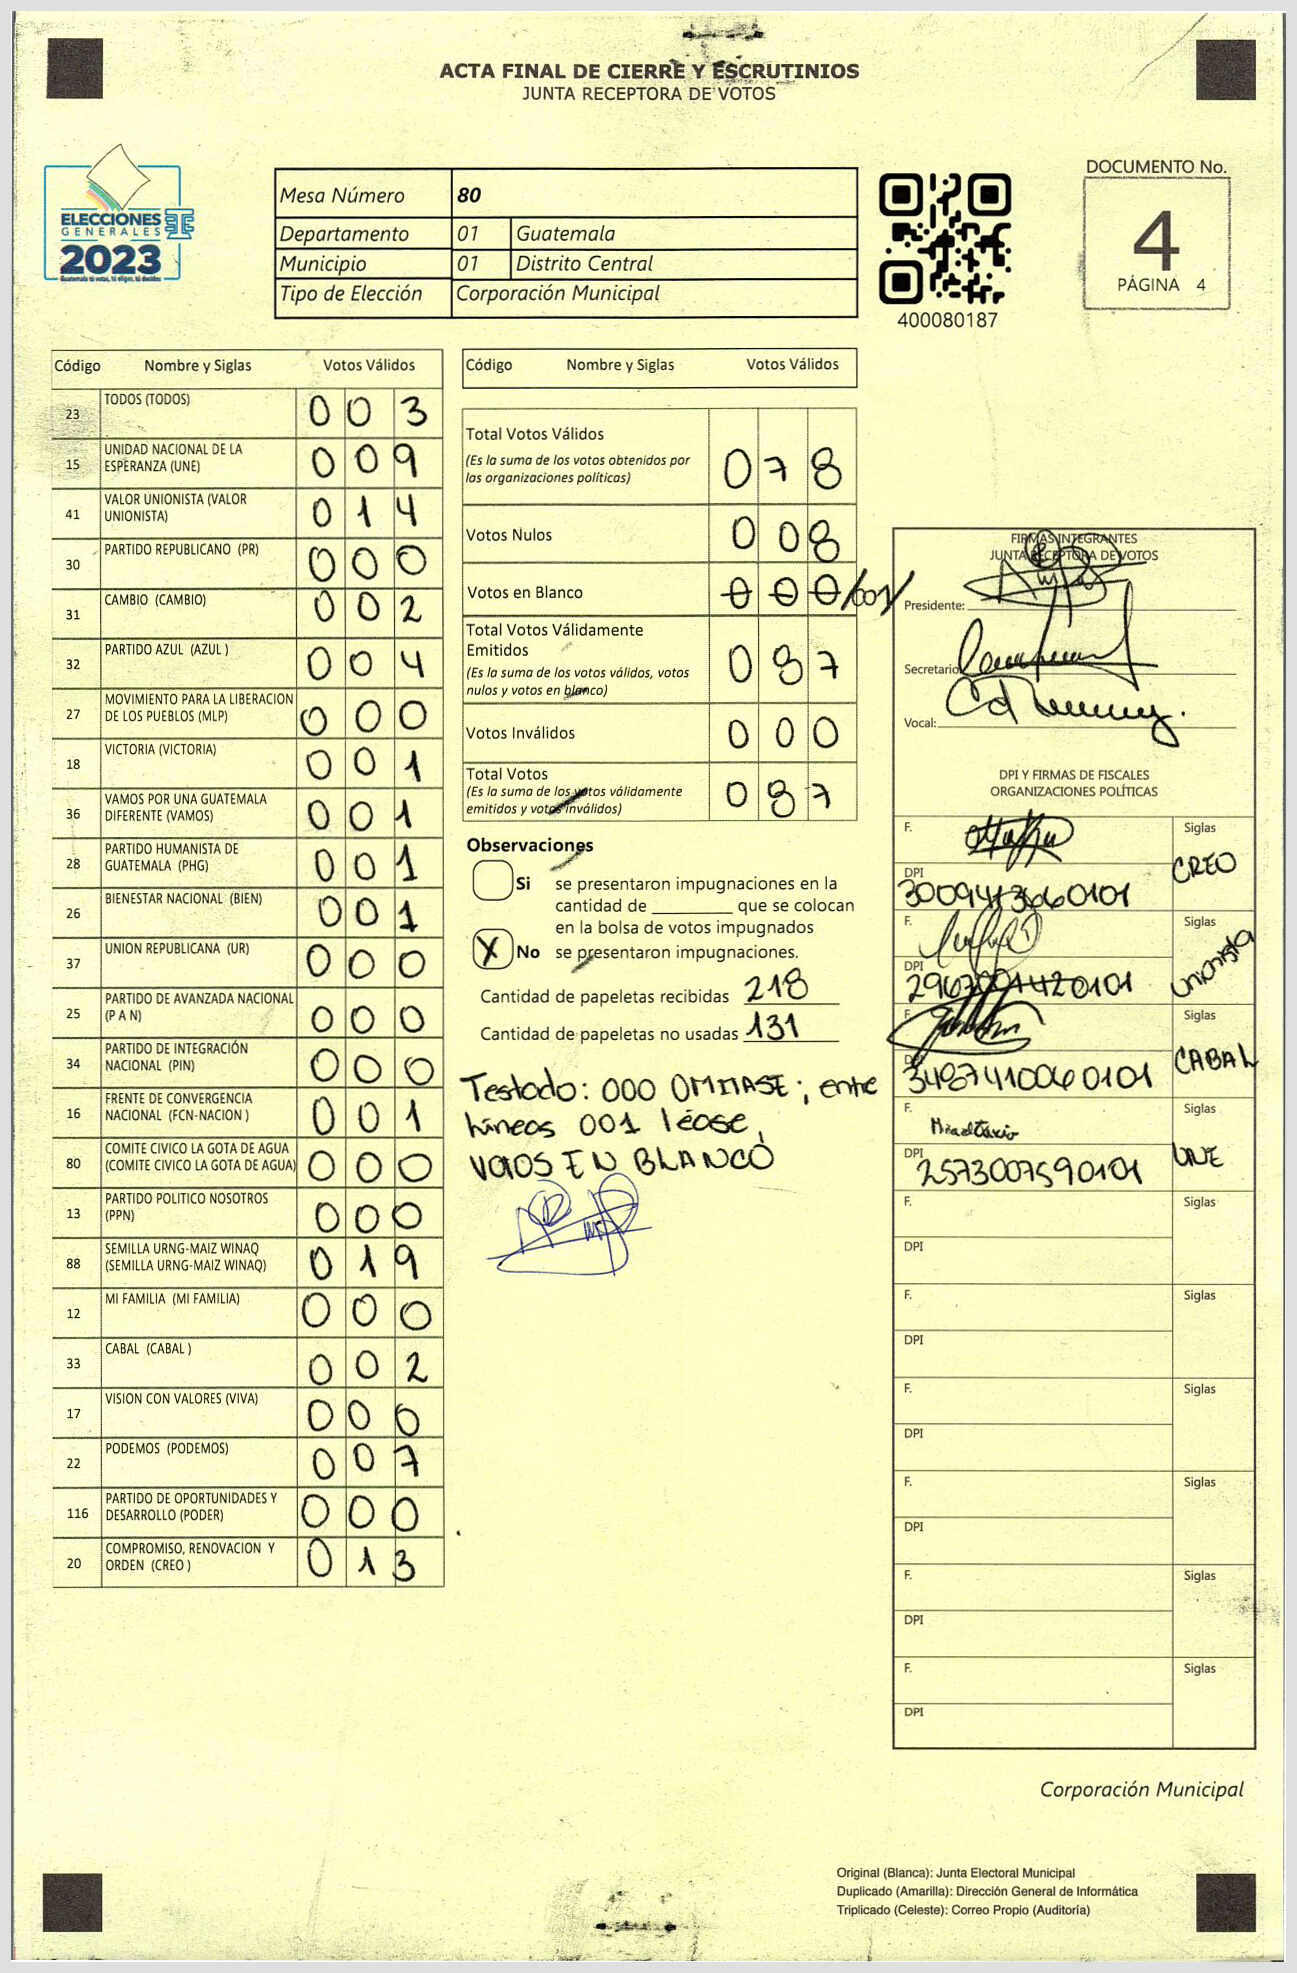 ACTA FINAL DE CIERRE Y ESCRUTINIOS
JUNTA RECEPTORA DE VOTOS
ELECCIONES
GENERALES
2023
Guatemala tú votas, tú eliges, tú decides
Mesa Número 80
Departamento 01 Guatemala
Municipio 01 Distrito Central
Tipo de Elección Corporación Municipal
400080187
DOCUMENTO No.
4
PÁGINA 4
Código Nombre y Siglas Votos Válidos
23 TODOS (TODOS) 0 0 3
15 UNIDAD NACIONAL DE LA
ESPERANZA (UNE) 0 0 9
41 VALOR UNIONISTA (VALOR
UNIONISTA) 0 1 4
30 PARTIDO REPUBLICANO (PR) 0 0 0
31 CAMBIO (CAMBIO) 0 0 2
32 PARTIDO AZUL (AZUL ) 0 0 4
27 MOVIMIENTO PARA LA LIBERACION
DE LOS PUEBLOS (MLP) 0 0 0
18 VICTORIA (VICTORIA) 0 0 1
36 VAMOS POR UNA GUATEMALA
DIFERENTE (VAMOS) 0 0 1
28 PARTIDO HUMANISTA DE
GUATEMALA (PHG) 0 0 1
26 BIENESTAR NACIONAL (BIEN) 0 0 1
37 UNION REPUBLICANA (UR) 0 0 0
25 PARTIDO DE AVANZADA NACIONAL
(P A N) 0 0 0
34 PARTIDO DE INTEGRACIÓN
NACIONAL (PIN) 0 0 0
16 FRENTE DE CONVERGENCIA
NACIONAL (FCN-NACION ) 0 0 1
80 COMITE CIVICO LA GOTA DE AGUA
(COMITE CIVICO LA GOTA DE AGUA) 0 0 0
13 PARTIDO POLITICO NOSOTROS
(PPN) 0 0 0
88 SEMILLA URNG-MAIZ WINAQ
(SEMILLA URNG-MAIZ WINAQ) 0 1 9
12 MI FAMILIA (MI FAMILIA) 0 0 0
33 CABAL (CABAL ) 0 0 2
17 VISION CON VALORES (VIVA) 0 0 0
22 PODEMOS (PODEMOS) 0 0 7
116 PARTIDO DE OPORTUNIDADES Y
DESARROLLO (PODER) 0 0 0
20 COMPROMISO, RENOVACION Y
ORDEN (CREO ) 0 1 3
Código Nombre y Siglas Votos Válidos
Total Votos Válidos
(Es la suma de los votos obtenidos por
las organizaciones políticas) 0 7 8
Votos Nulos 0 0 8
Votos en Blanco 0 0 0 /001/
Total Votos Válidamente
Emitidos
(Es la suma de los votos válidos, votos
nulos y votos en blanco) 0 8 7
Votos Inválidos 0 0 0
Total Votos
(Es la suma de los votos válidamente
emitidos y votos inválidos) 0 8 7
Observaciones
Si se presentaron impugnaciones en la
cantidad de ________ que se colocan
en la bolsa de votos impugnados
X No se presentaron impugnaciones.
Cantidad de papeletas recibidas 218
Cantidad de papeletas no usadas 131
Testado: 000 OMITASE; entre
líneas 001 léase,
VOTOS EN BLANCO
FIRMAS INTEGRANTES
JUNTA RECEPTORA DE VOTOS
Presidente:
Secretario
Vocal:
DPI Y FIRMAS DE FISCALES
ORGANIZACIONES POLÍTICAS
F. Siglas
CREO
DPI
3009413660101
F. Siglas
Unionista
DPI
2967001420101
F. Siglas
CABAL
DPI
3487410060101
F. Siglas
UNE
DPI
2573007590101
F. Siglas
DPI
F. Siglas
DPI
F. Siglas
DPI
F. Siglas
DPI
F. Siglas
DPI
F. Siglas
DPI
Corporación Municipal
Original (Blanca): Junta Electoral Municipal
Duplicado (Amarilla): Dirección General de Informática
Triplicado (Celeste): Correo Propio (Auditoría)